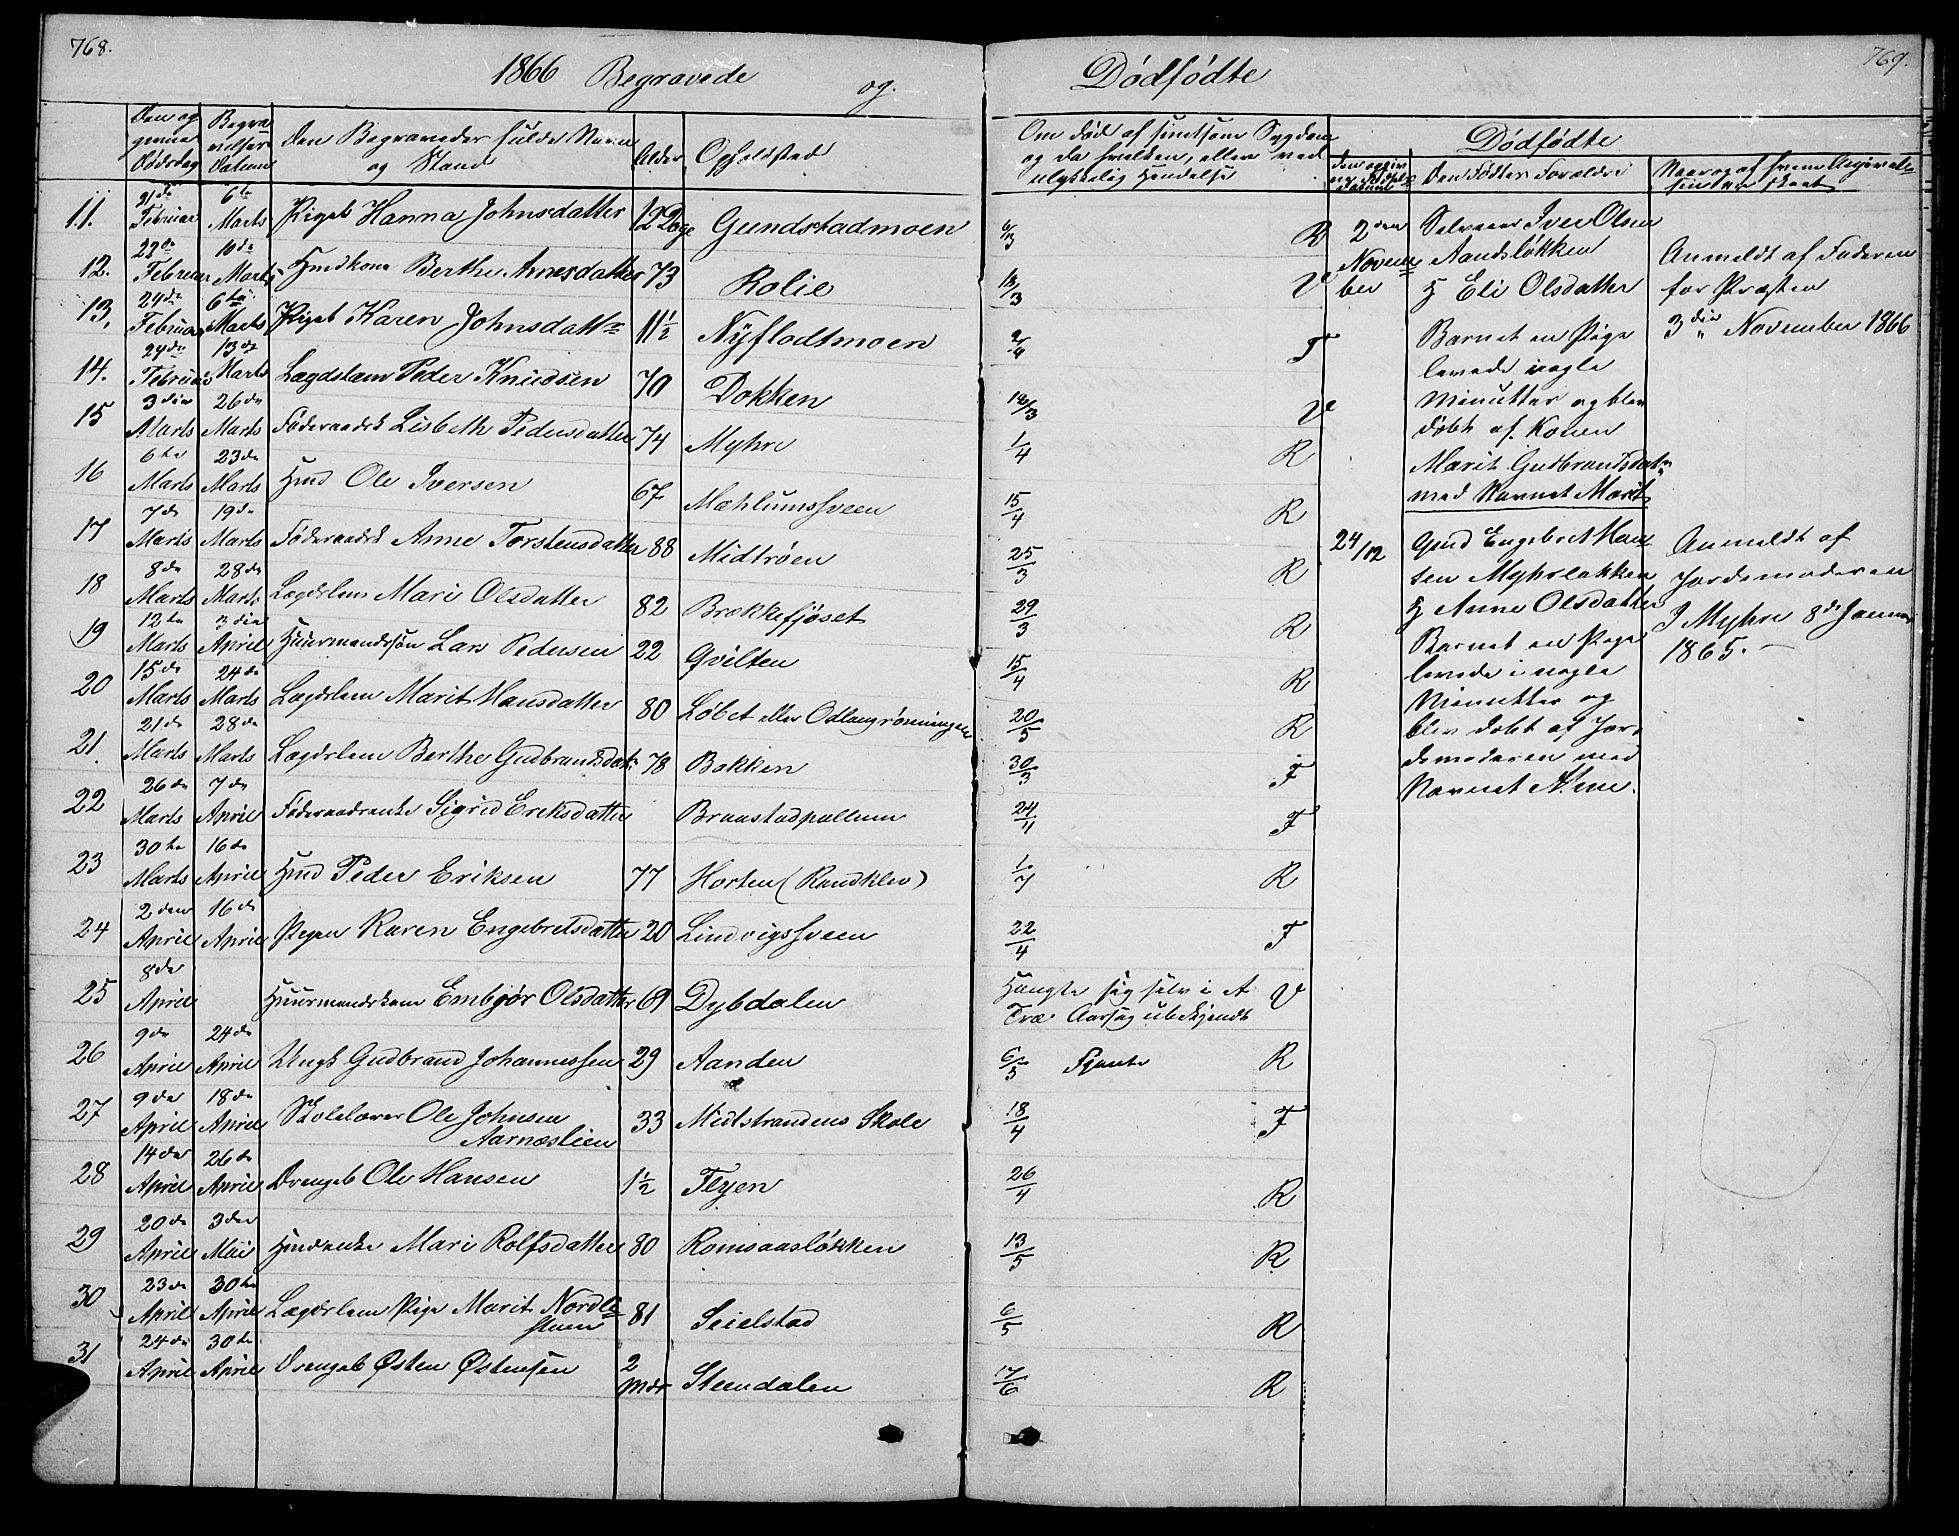 768.
1866 Begravede og
Den og
givne
Dødsdag
Begra
velses
Datum
Den Begravedes fulde Navn
og Stand
Alder
Opholdsted
11. 21de Februar 6te Marts Pigeb Hanna Johnsdatter 12 Dage Gundstadmoen
12. 22de Februar 10de Marts Gmdkone Berthe Arnesdatter 73 Rolie
13. 24de Februar 6te Marts Pigeb Karen Johnsdattr 11½ Nyflodtmoen
14. 24de Februar 13de Marts Lægdslem Peder Knudsen 70 Dokken
15 3die Marts 26de Marts Føderaadsk Lisbeth Pedersdatter 74 Myhre
16 6te Marts 23de Marts Gmd Ole Iversen 67 Mæhlumssveen
17 7de Marts 19de Marts Føderaadsk Anne Torstensdatter 88 Midtrøen
18 8de Marts 28de Marts Lægdslem Mari Olsdatter 82 Brækkefjøset
19 12te Marts 3die April Huusmandssøn Lars Pedersen 22 Qvilten
20 15de Marts 24de Marts Lægdslem Marit Hansdatter 80 Løbet eller Odlaugrønningen
21. 21de Marts 28de Marts Lægdslem Berthe Gudbrandsdatr 78 Bakken
22 26de Marts 7de April Føderaadsenke Sigrid Eriksdatter Braastadpallum
23 30te Marts 16de April Gmd Peder Eriksen 77 Horten (Randklev)
24 2den April 16de April Pigen Karen Engebretsdatter 20 Lindvigssveen
25 8de April Huusmandskone Embjør Olsdatter 69 Dybdalen
26 9de April 24de April Ungk Gudbrand Johannessen 29 Aanden
27 9de April 18de April Skolelærer Ole Johnsen Aarnæslien 33 Midtstrandens Skole
28 14de April 26de April Drengeb Ole Hansen 1½ Flyen
29 20de April 3die Mai Gmdenke Mari Rolfsdatter 80 Romsaasløkken
30 23de April 30te April Lægdslem Pige Marit Nordle 81 Seielstad
31 24de April 30te April Drengeb Østen Østensen 2 Mdr Steendalen
769.
Dødfødte
Om død af smitsom Sygdom
og da hvilken, eller ved
ulykkelig Hendelse
Dødfødte
Den Fødtes Forældre
Naar og af hvem Angivel-
sen er skeet
6/3 R
13/3 V
2/4 F
14/3 V
1/4 R
15/4 R
25/3 R
29/3 R
15/4 R
20/5 R
30/3 F
24/4 F
1/7 R
22/4 F
Hængte sig selv i et V
Træ Aarsag ubekjendt
6/5 R
18/4 F
26/4 R
13/5 R
6/5 R
17/6 R
2den
Novem
ber
Selveier Iver Olsen
Aandsløkken
H Eli Olsdatter
Barnet en Pige
levede nogle
Minutter og blev
døbt af Konen
Marit Gudbrandsdatr
med Navnet Marit
Anmeldt af Faderen
for Præsten
3die November 1866
24/12
Gmd Engebret Han
sen Myhrløkken
H Anne Olsdatter
Barnet en Pige
levede i nogle
Minutter og
blev døbt af Jor-
demoderen med
Navnet Anne.
Anmeldt af
Jordemoderen
I Myhre 8de Januar
1865.